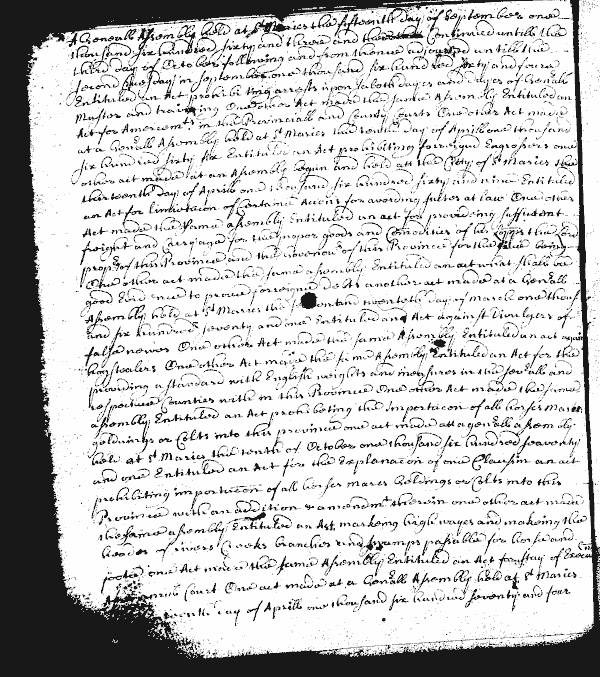 A Generall Assembly held at St Maries the fifteenth day of September one
thousand six hundred sixty and three and there Continued untill the
third day of October following and from thence adjourned untill the
second Tuesday in September one thousand six hundred sixty and foure
Entituled an Act prohibiting arrests upon saboth dayes and dayes of Genall
Muster and training One other Act made the same Assembly Entituled an
Act for Amercemts in the Provinciall and County Courts One other Act made
at a Genall Assembly held at St Maries the tenth day of Aprill one thousand
six hundred sixty six Entituled an Act prohibiting forreigne Engrossers one
other act made at an Assembly begun and held att the City of St Maries the
thirteenth day of Aprill one thousand six hundred sixty and nine Entituled
an Act for limitacon of Certaine Accons for avoiding suites at law One other
Act made the same Assembly Entituled an act for provideing sufficient
freight and Carryage for the proper goods and Comodities of his Lopps the
propr of this Province and the Governor of this Province for the time being
One other act made the same Assembly Entituled an act what shall be
good Evidence to prove forreigne debts another act made at a Genall
Assembly held at St Maries the seven and twentieth day of March one thous
and six hundred seventy and one Entituled an Act against Divulgers of
false newes One other Act made the same Assembly Entituled an act against
hogstealers One other Act made the same Assembly Entituled an Act for the
providing a standard with English weights and measures in the severall and
respective Counties with in this Province One other Act made the same
Assembly Entituled an Act prohibiting the Importacon of all horses Mares
Geldings or Colts into this province one act made att a genall assembly
held at St Maries the tenth of October one thousand six hundred seaventy
and one Entituled an Act for the Explanacon of one Clause in an act
prohibiting importacon of all horses mares Geldings or Colts into this
Province with an addition & amendmt therein one other act made
the same assembly Entituled an Act markeing high wayes and makeing the
heades of rivers Creeks branches and swamps passable for horse and
foote one Act made the same Assembly Entituled an Act for stay of Execucon
Court One act made at a Genall Assembly held at St Maries
day of Aprill one thousand six hundred seventy and four